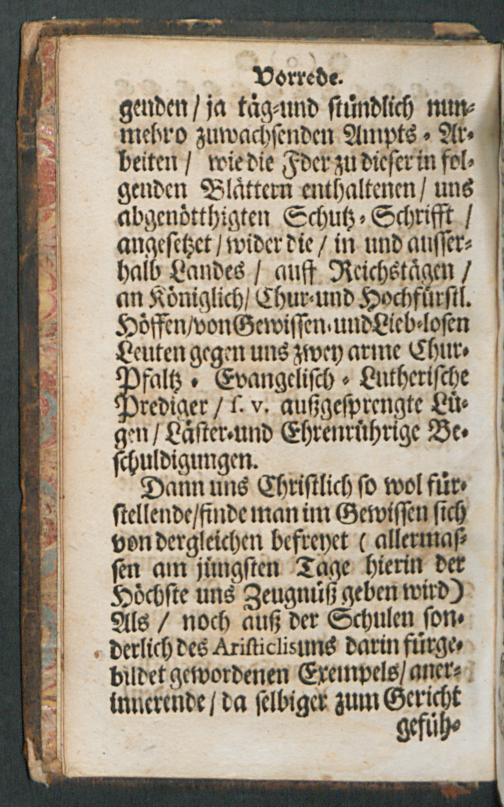 Vorrede.
genden / ja täg⸗und stündlich nun⸗
mehro zuwachsenden Ampts⸗Ar⸗
beiten / wie die Fder zu dieser in fol⸗
genden Blättern enthaltenen / uns
abgenötthigten Schutz⸗Schrifft /
angesetzet / wider die / in und ausser⸗
halb Landes / auff Reichstägen /
an Königlich / Chur⸗und Hochfürstl.
Höffen / von Gewissen⸗und Lieb⸗losen
Leuten gegen uns zwey arme Chur⸗
Pfaltz⸗Evangelisch⸗Lutherische
Prediger / s. v. außgesprengte Lü⸗
gen / Läster⸗und Ehrenrührige Be⸗
schuldigungen.
Dann uns Christlich so wol für⸗
stellende / finde man im Gewissen sich
von dergleichen befreyet ( allermas⸗
sen am jüngsten Tage hierin der
Höchste uns Zeugnüß geben wird )
Als / noch auß der Schulen son⸗
derlich des Aristiclis uns darin fürge⸗
bildet gewordenen Exempels / aner⸗
innerende / da selbiger zum Gericht
gefüh⸗